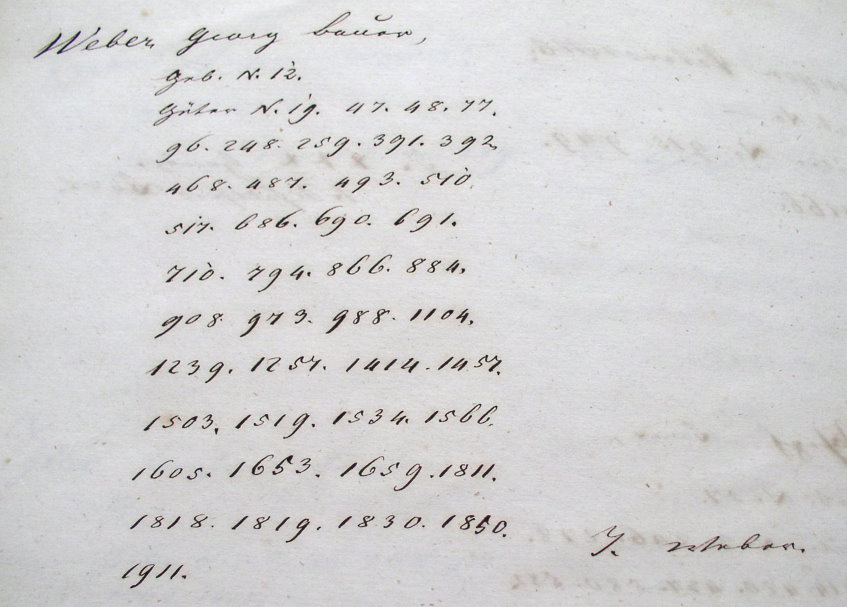 Weber Georg Bauer,
Geb. N. 12.
Güter N. 19. 47. 48. 77.
96. 248. 259. 391. 392.
468. 487. 493. 510.
517. 686. 690. 691.
710. 794. 866. 884.
908. 973. 988. 1104.
1239. 1257. 1414. 1457.
1503. 1519. 1534. 1566.
1605. 1653. 1659. 1811.
1818. 1819. 1830. 1850.
1911.
J. Weber.